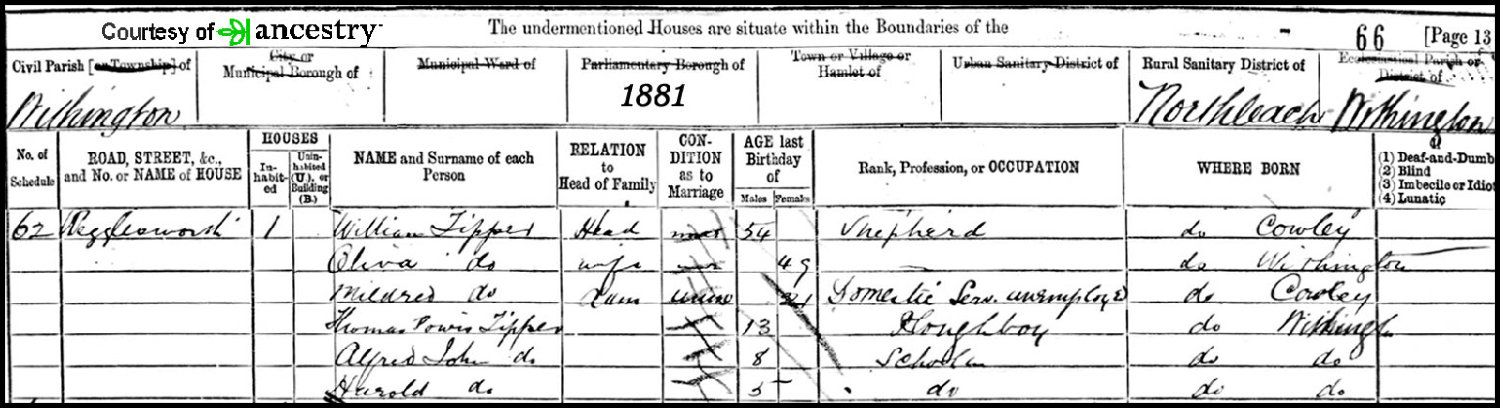 Courtesy of ancestry
The undermentioned Houses are situate within the Boundaries of the
66 [Page 13
Civil Parish [or Township] of
City or Municipal Borough of
Municipal Ward of
Parliamentary Borough of
Town or Village or Hamlet of
Urban Sanitary District of
Rural Sanitary District of
Ecclesiastical Parish or District of
Withington 1881 Northleach Withington
No. of Schedule
ROAD, STREET, &c., and No. or NAME of HOUSE
HOUSES
In-habit-ed
Unin-habited (U.), or Building (B.)
NAME and Surname of each Person
RELATION to Head of Family
CON-DITION as to Marriage
AGE last Birthday of
Males Females
Rank, Profession, or OCCUPATION
WHERE BORN
(1) Deaf-and-Dumb
(2) Blind
(3) Imbecile or Idiot
(4) Lunatic
62 1 William Tipper Head mar 54 Shepherd do Cowley
Oliva do wife 49 do Withington
Mildred do Daur unm 21 Domestic Serv. unemployed do Cowley
Thomas Powis Tipper 13 Ploughboy do Withington
Alfred John do 8 Scholar do do
Harold do 5 do do do